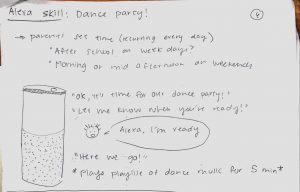 Alexa skill: Dance party!
4
→ parents set time (recurring every day)
"After school on week days"
"Morning or mid afternoon on weekends
"Ok, it's time for our dance party!"
"Let me know when you're ready!"
Alexa, I'm ready
"Here we go!"
*plays playlist of dance music for 5 min*